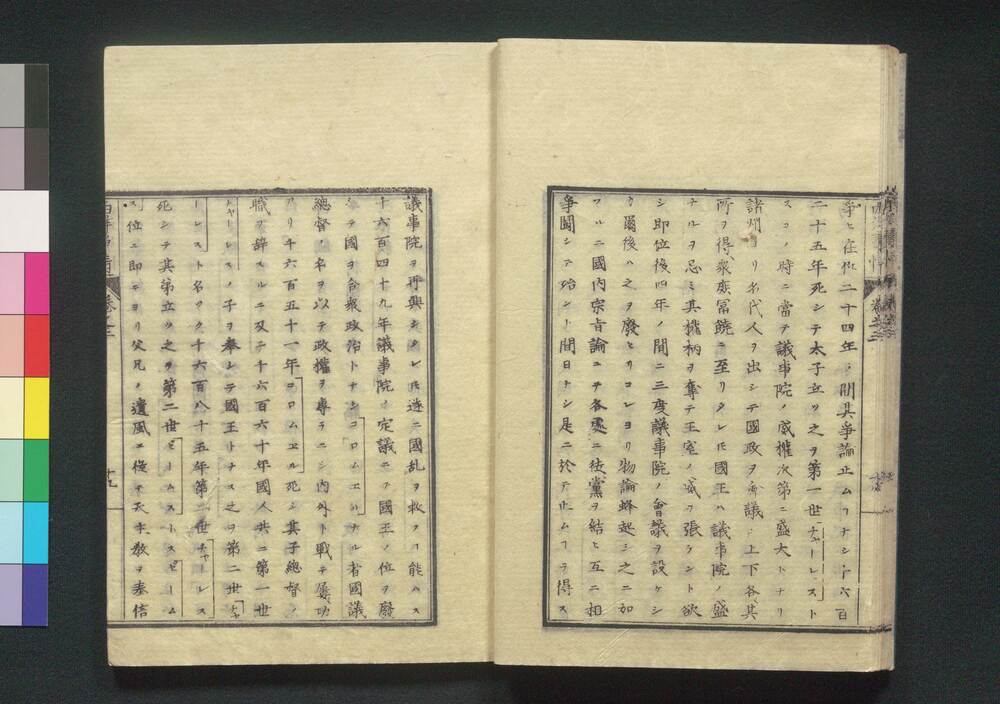 争ヒ在位二十四年ノ間其争論止ムヿナシ千六百
二十五年死シテ太子立ツ之ヲ第一世チャーレスト
云フ此ノ時ニ當テ議事院ノ威權次第ニ盛大トナリ
諸州ヨリ名代人ヲ出シテ國政ヲ商議シ上下各其
所ヲ得衆庶冨饒ニ至リタレ𪜈國王ハ議事院ノ盛
ナルヲ忌ミ其權柄ヲ奪テ王室ノ威ヲ張ラント欲
シ即位後四年ノ間ニ三度議事院ノ會議ヲ設ケシ
カ爾後ハ之ヲ廢セリコレヨリ物論蜂起シ之ニ加
フルニ國内宗旨論ニテ各處ニ徒黨ヲ結ヒ互ニ相
争闘シテ殆ント間日ナシ是ニ於テ止ムヿヲ得ス
議事院ヲ再興シタレ𪜈遂ニ國乱ヲ救フヿ能ハス
千六百四十九年議事院ノ定議ニテ國王ノ位ヲ廢
シテ國ヲ合衆政治トナシコロムエルナル者國議
總督ノ名ヲ以テ政權ヲ專ラニシ内外ト戰テ屢功
アリ千六百五十一年コロムエル死シ其子總督ノ
職ヲ辞スルニ及ンテ千六百六十年國人共ニ第一世
チャーレスノ子ヲ奉シテ國王トナス之ヲ第二世チャ
ーレスト名ク千六百八十五年第二世チャーレス
死シテ其弟立ツ之ヲ第二世ゼームストスゼーム
ス位ニ即テヨリ父兄ノ遺風ニ傚テ天主教ヲ奉信
卷之三
十九